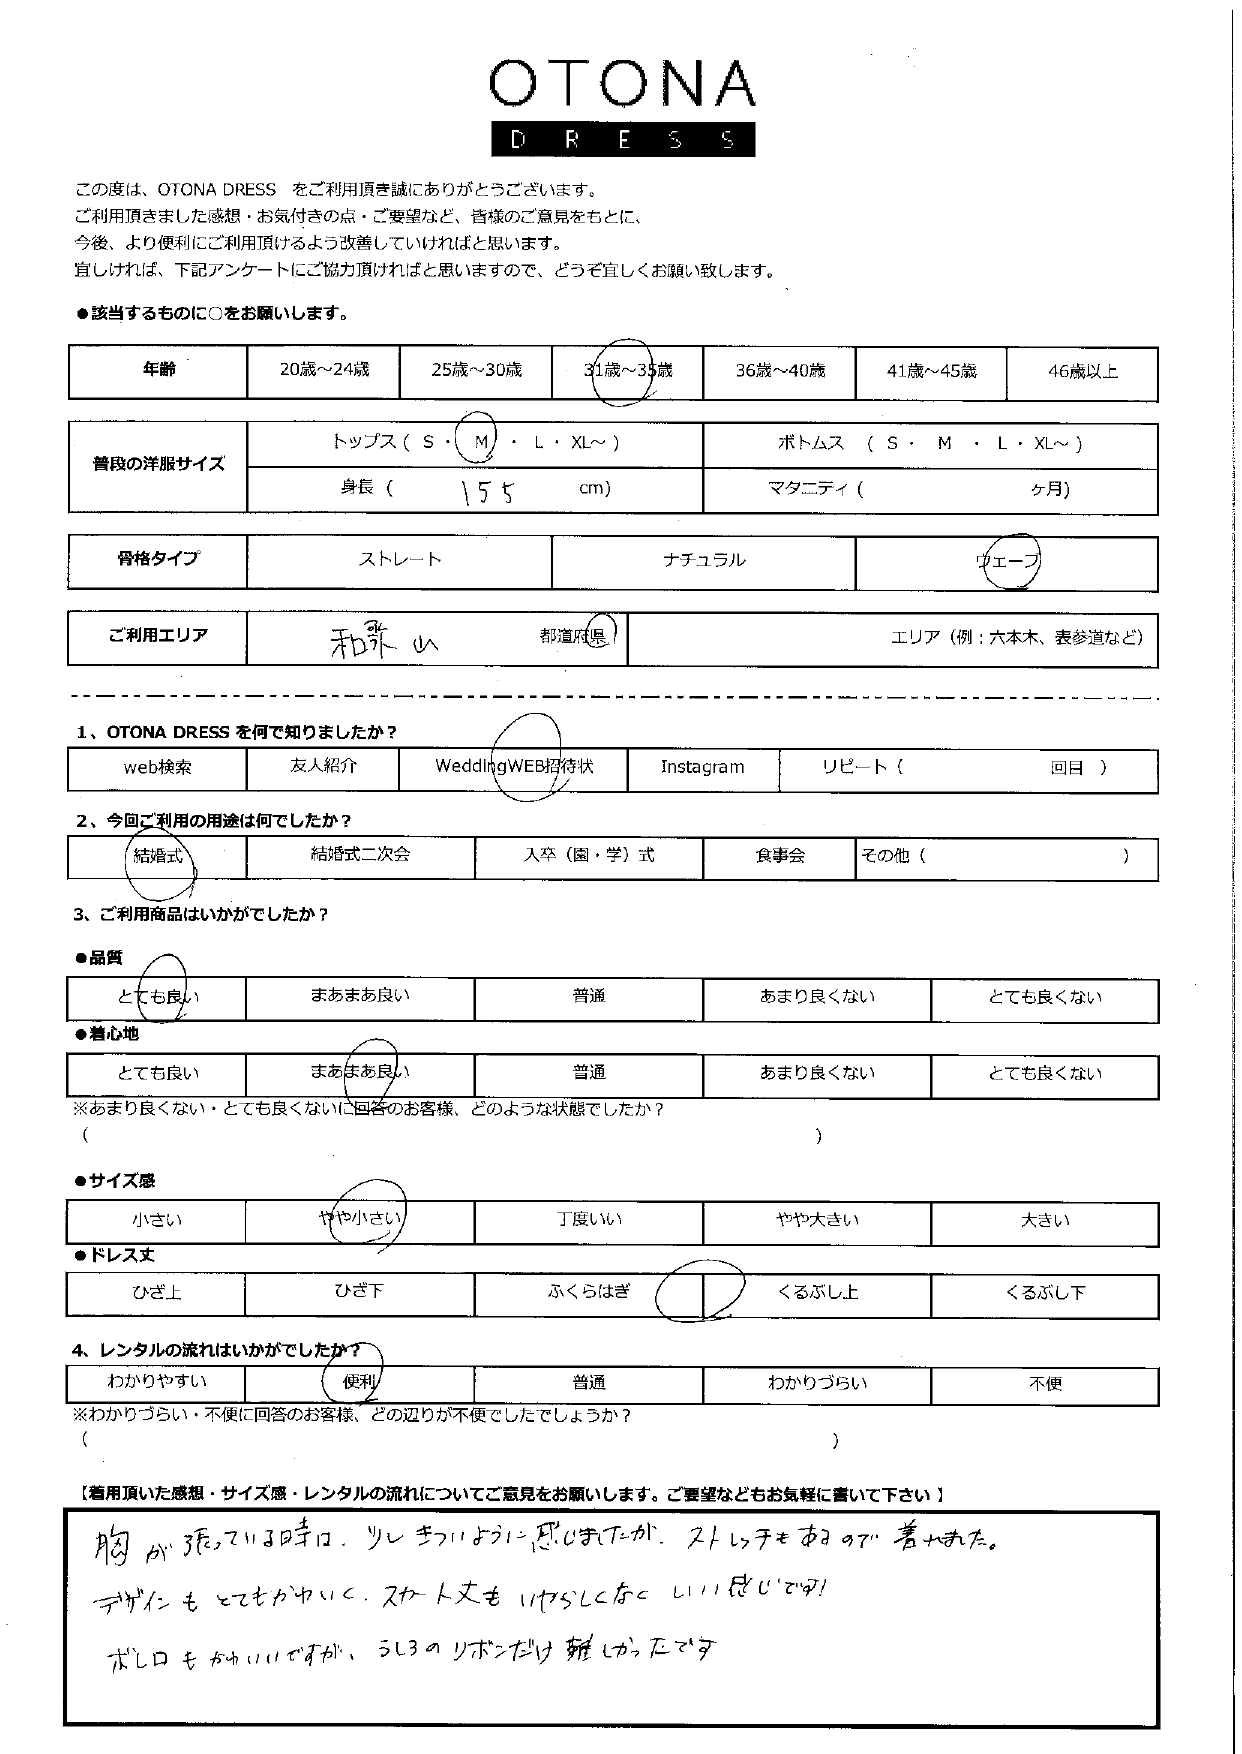 OTONA
DRESS
この度は、OTONA DRESS をご利用頂き誠にありがとうございます。
ご利用頂きました感想・お気付きの点・ご要望など、皆様のご意見をもとに、
今後、より便利にご利用頂けるよう改善していければと思います。
宜しければ、下記アンケートにご協力頂ければと思いますので、どうぞ宜しくお願い致します。
●該当するものに○をお願いします。
年齢 20歳～24歳 25歳～30歳 31歳～35歳 36歳～40歳 41歳～45歳 46歳以上
普段の洋服サイズ トップス ( S ・ M ・ L ・ XL～ ) ボトムス ( S ・ M ・ L ・ XL～ )
身長 ( 155 cm) マタニティ ( ヶ月)
骨格タイプ ストレート ナチュラル ウェーブ
ご利用エリア 和歌山 都道府県 エリア（例：六本木、表参道など）
1、OTONA DRESS を何で知りましたか？
web検索 友人紹介 WeddingWEB招待状 Instagram リピート ( 回目 )
2、今回ご利用の用途は何でしたか？
結婚式 結婚式二次会 入卒（園・学）式 食事会 その他 ( )
3、ご利用商品はいかがでしたか？
●品質
とても良い まあまあ良い 普通 あまり良くない とても良くない
●着心地
とても良い まあまあ良い 普通 あまり良くない とても良くない
※あまり良くない・とても良くないに回答のお客様、どのような状態でしたか？
( )
●サイズ感
小さい やや小さい 丁度いい やや大きい 大きい
●ドレス丈
ひざ上 ひざ下 ふくらはぎ くるぶし上 くるぶし下
4、レンタルの流れはいかがでしたか？
わかりやすい 便利 普通 わかりづらい 不便
※わかりづらい・不便に回答のお客様、どの辺りが不便でしたでしょうか？
( )
【着用頂いた感想・サイズ感・レンタルの流れについてご意見をお願いします。ご要望などもお気軽に書いて下さい 】
胸が張っている時は、少しきついように感じましたが、ストレッチもあるので着れました。
デザインもとてもかわいく、スカート丈もいやらしくなくいい感じです!
ボレロもかわいいですが、うしろのリボンだけ難しかったです